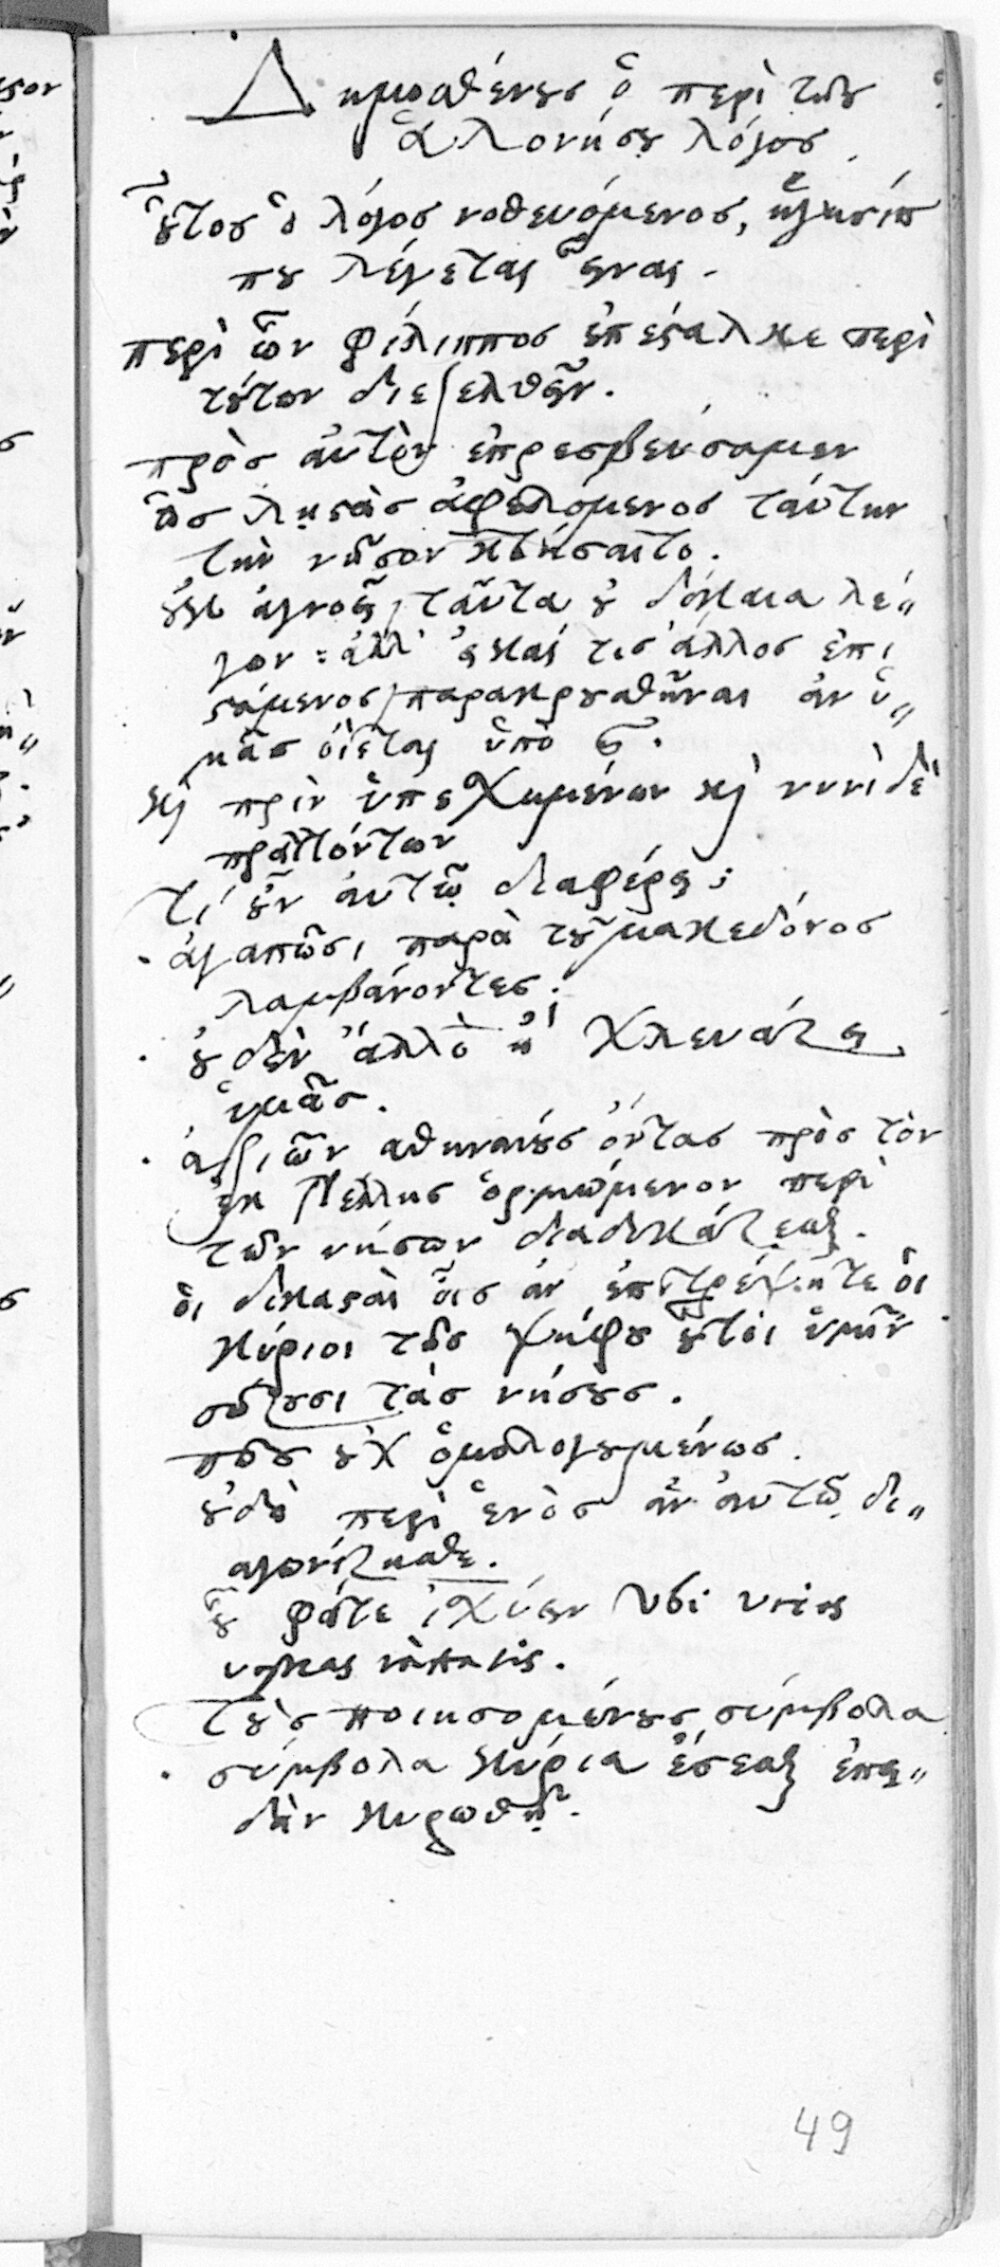 Δημοσθένους ὁ περὶ τοῦ
ἁλονήσου λόγος.
οὗτος ὁ λόγος νοθευόμενος, ἡγησίπ
που λέγεται εἶναι.
περὶ ὧν φίλιππος ἐπέσταλκε περὶ
τούτων διεξελθεῖν.
πρὸς ἀυτὸν ἐπρεσβεύσαμεν
ὡς ληστὰς ἀφελόμενος ταύτην
τὴν νῆσον κτήσαιτο.
οὐκ ἀγνοεῖ ταῦτα οὐ δίκαια λέ„
γων : ἀλλ' εἰ καί τις ἄλλος ἐπι
στάμενος παρακρουσθῆναι ἀν ὑ„
μᾶς οἴεται ὑπὸ
καὶ πρὶν ὑπεσχημένων καὶ νυνὶ δὲ
πραττόντων
τί οὖν ἀυτῷ διαφέρει;
ἀγαπῶσι παρὰ τοῦ μακεδόνος
λαμβάνοντες.
οὐδὲν ἄλλο ἢ χλευάζει
ὑμᾶς.
ἀξιῶν αθηναίους ὄντας πρὸς τὸν
ἐκ Πέλλης ὁρμώμενον περὶ
τῶν νήσων διαδικάζεσθαι.
ὁι δικασταὶ οἷς ἀν ἐπιτρέψητε ὁι
κύριοι τῆς ψήφου οὗτοι ὑμῖν
σώζουσι τὰς νήσους.
πῶς οὐχ ὁμολογουμένως.
οὐδὲ περὶ ἑνὸς ἀν ἀυτῷ δι„
αγωνίζησθε.
οὗ φατε ἰσχύειν
τοὺς ποιησομένους σύμβολα
σύμβολα κύρια ἔσεσθαι ἐπει„
δὰν κυρωθῇ.
49